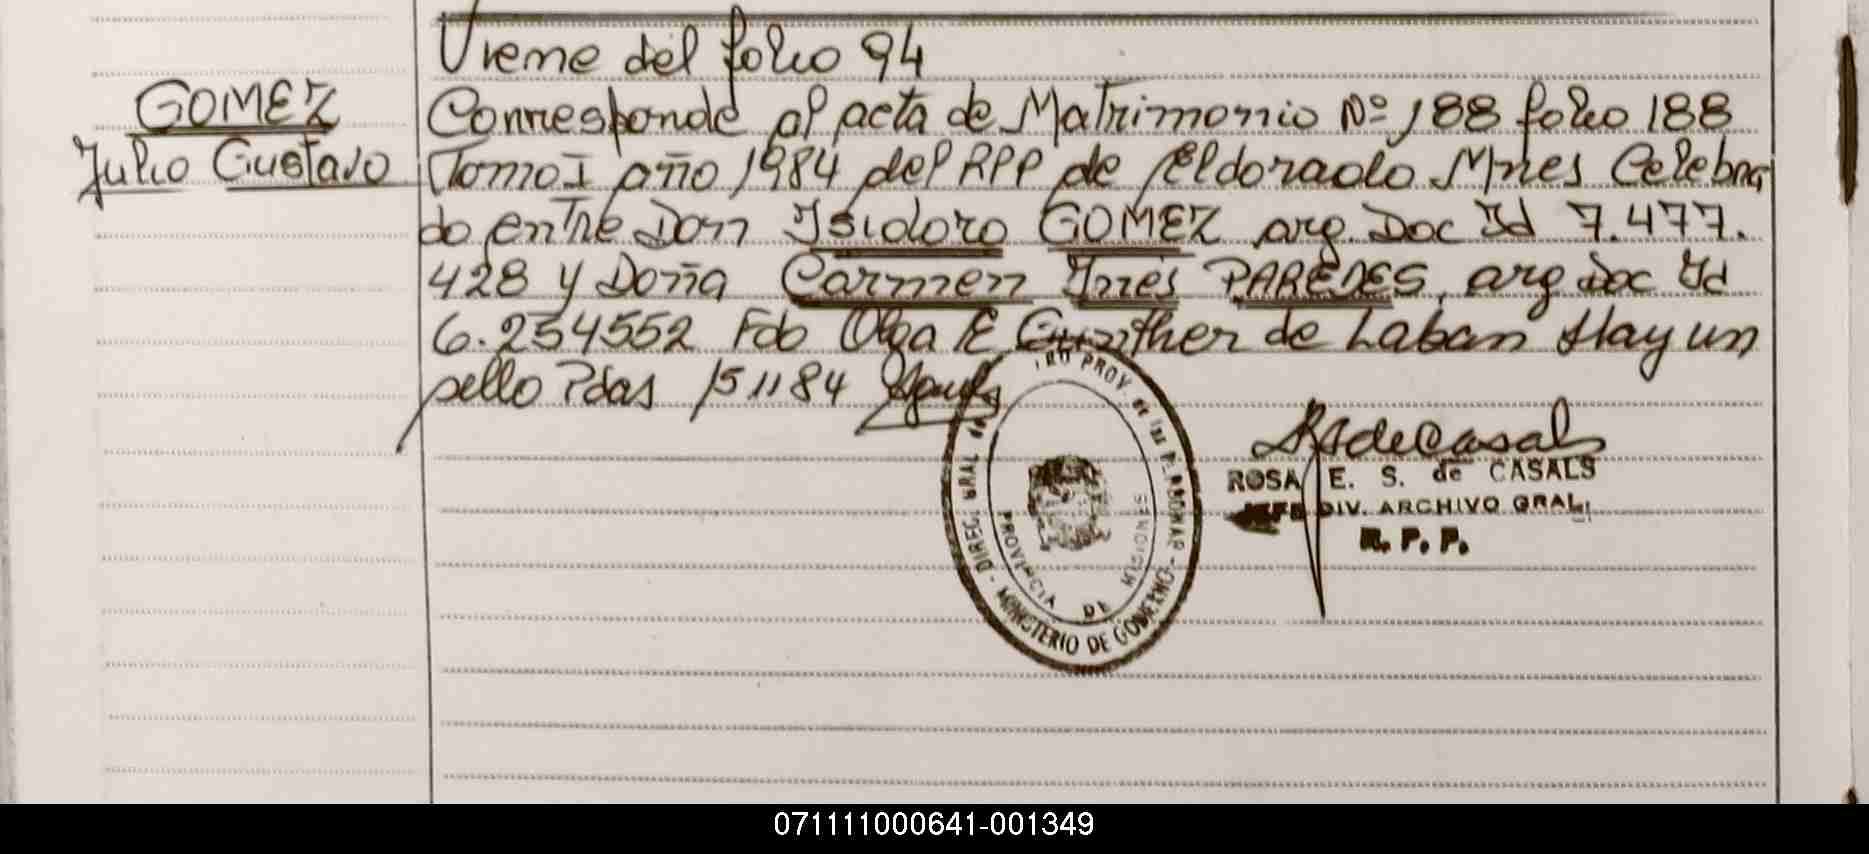 Viene del folio 94
GOMEZ
Julio Gustavo
Corresponde al acta de Matrimonio Nº 188 folio 188
Tomo I año 1984 del RPP de Eldorado Mnes Celebra
do entre Don Isidoro GOMEZ arg. Doc Id 7.477.
428 y Doña Carmen Inés PAREDES, arg Doc Id
6.254552 Fdo Olga E Gunther de Laban Hay un
sello Pdas 15 11 84
DIREC. GRAL. del REG PROV. de las PERSONAS - MINISTERIO DE GOBIERNO -
PROVINCIA DE MISIONES
RSdeCasals
ROSA E. S. de CASALS
JEFE DIV. ARCHIVO GRAL.
R. P. P.
071111000641-001349